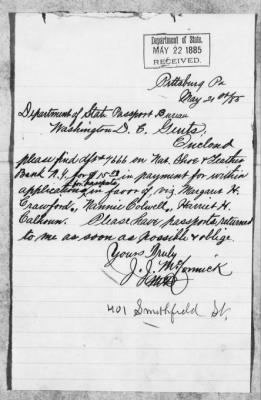 Department of State.
MAY 22 1885
RECEIVED.
Pittsburg Pa
May 21st /85
Department of State Passport Bureau
Washington D. C. Gents,
Enclosed
please find dft # 7666 on Nat. Shoe & Leather
Bank N.Y. for $15.00 in payment for within
for passports,
applications in favor of viz Margaret H.
Crawford, Nannie Colwell, Harriet H.
Calhoun. Please have passports returned
to me as soon as possible & oblige
Yours Truly
J. J. McCormick
401 Smithfield St.